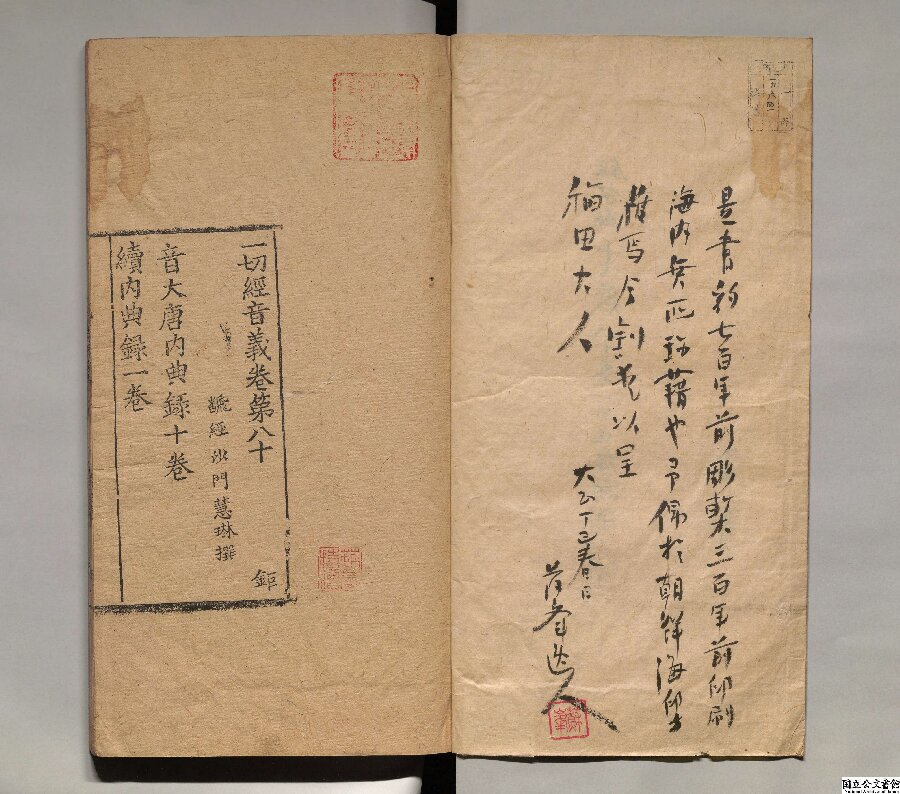 是書彩七百年前彫槧三百年前印刷
海内無匹珍籍也予得於朝鮮海印寺
蔵焉今割愛以呈
福田大人
大正丁巳春日
一切經音義卷第八十
翻經沙門慧琳撰
鉅
音大唐内典録十卷
續内典録一卷
国立公文書館
National Archives of Japan